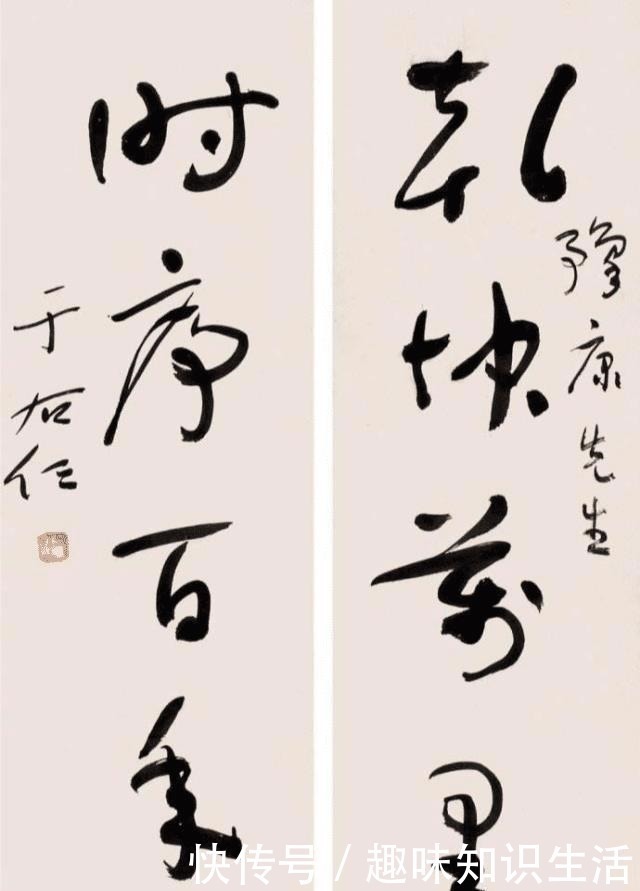 乾坤萬里
豫康先生
时序百年
于右任
快传号 / 趣味知识生活